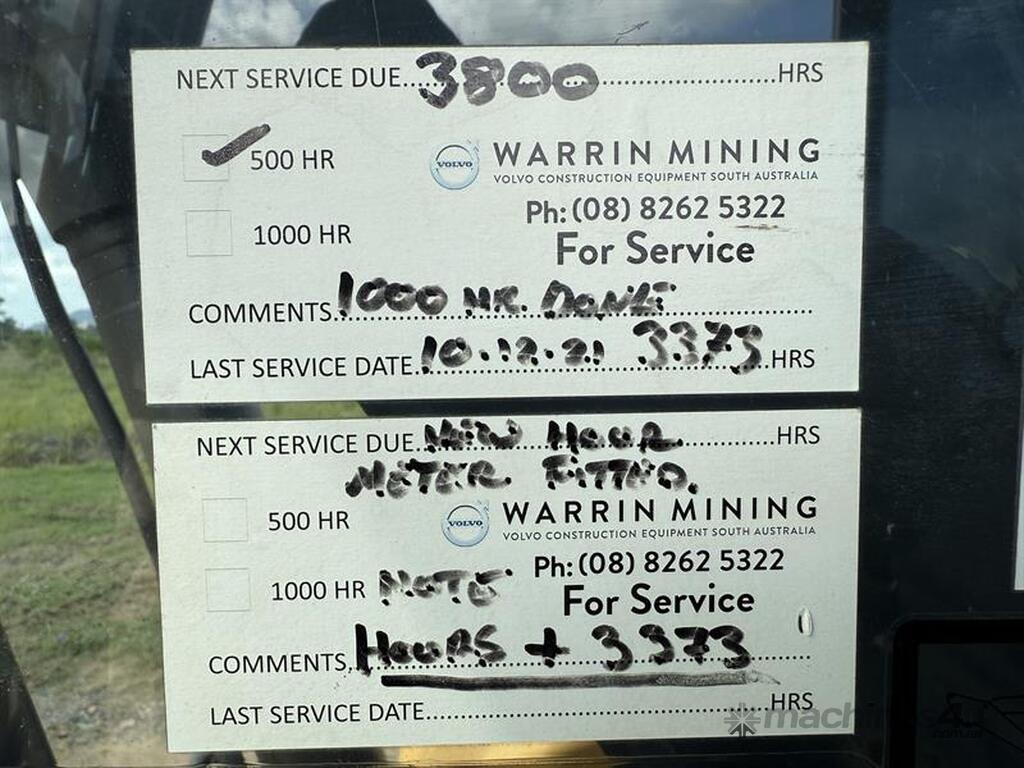 NEXT SERVICE DUE...3800...HRS
500 HR
VOLVO
WARRIN MINING
VOLVO CONSTRUCTION EQUIPMENT SOUTH AUSTRALIA
1000 HR
Ph: (08) 8262 5322
For Service
COMMENTS...1000 HR. DONE
LAST SERVICE DATE...10.12.21 3373 HRS
NEXT SERVICE DUE...NEW HOUR...HRS
METER FITTED.
500 HR
VOLVO
WARRIN MINING
VOLVO CONSTRUCTION EQUIPMENT SOUTH AUSTRALIA
1000 HR NOTE
Ph: (08) 8262 5322
For Service
COMMENTS...HOURS + 3373
LAST SERVICE DATE...HRS
machines4u
.com.au